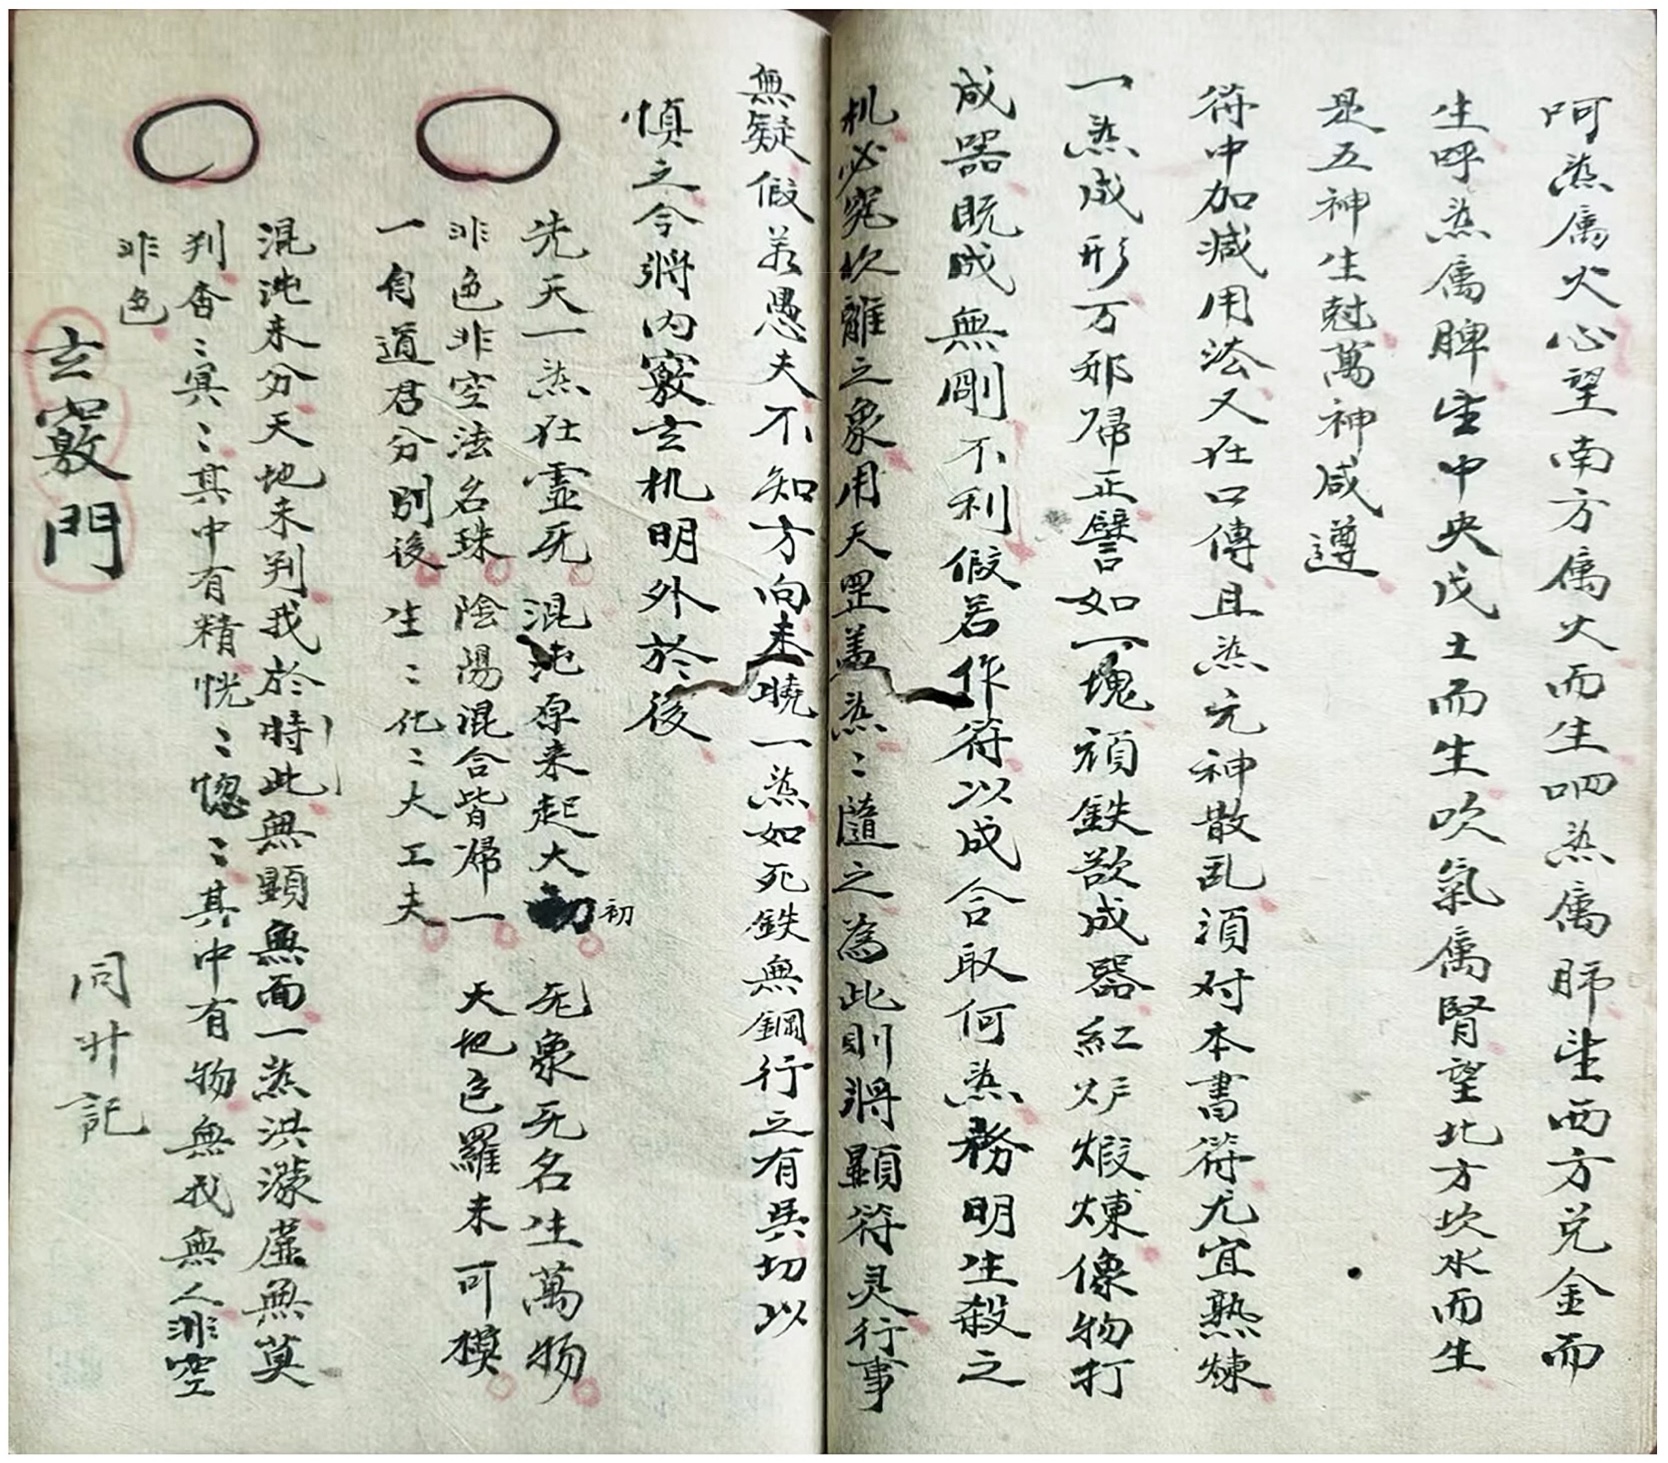 呵炁属火心望南方属火而生呬炁属肺望西方兑金而
生呼炁属脾望中央戊土而生吹氣属腎望北方坎水而生
是五神生尅萬神咸遵
符中加减用法又在口傳且炁元神散乱須对本書符尤宜熟煉
一炁成形万邪歸正譬如一塊頑鉄欲成器紅炉煅煉像物打
成器既成無剛不利假若作符以成合取何炁務明生殺之
机必究坎離之象用天罡盖炁〻隨之為此則將顕符灵行事
無疑假若愚夫不知方向未曉一炁如死鉄無鋼行之有吳切以
慎之今將内竅玄机明外於後
先天一炁在霊死 混沌原来起大初 死象死名生萬物
初
非色非空法名珠 陰陽混合皆歸一 天地色羅未可模
一自道君分别後 生〻化〻大工夫
混沌未分天地未判我於時此無顕無面一炁洪濛虚無莫
判杳〻冥〻其中有精恍〻惚〻其中有物無我無人非空
非色
玄竅門
同廾記